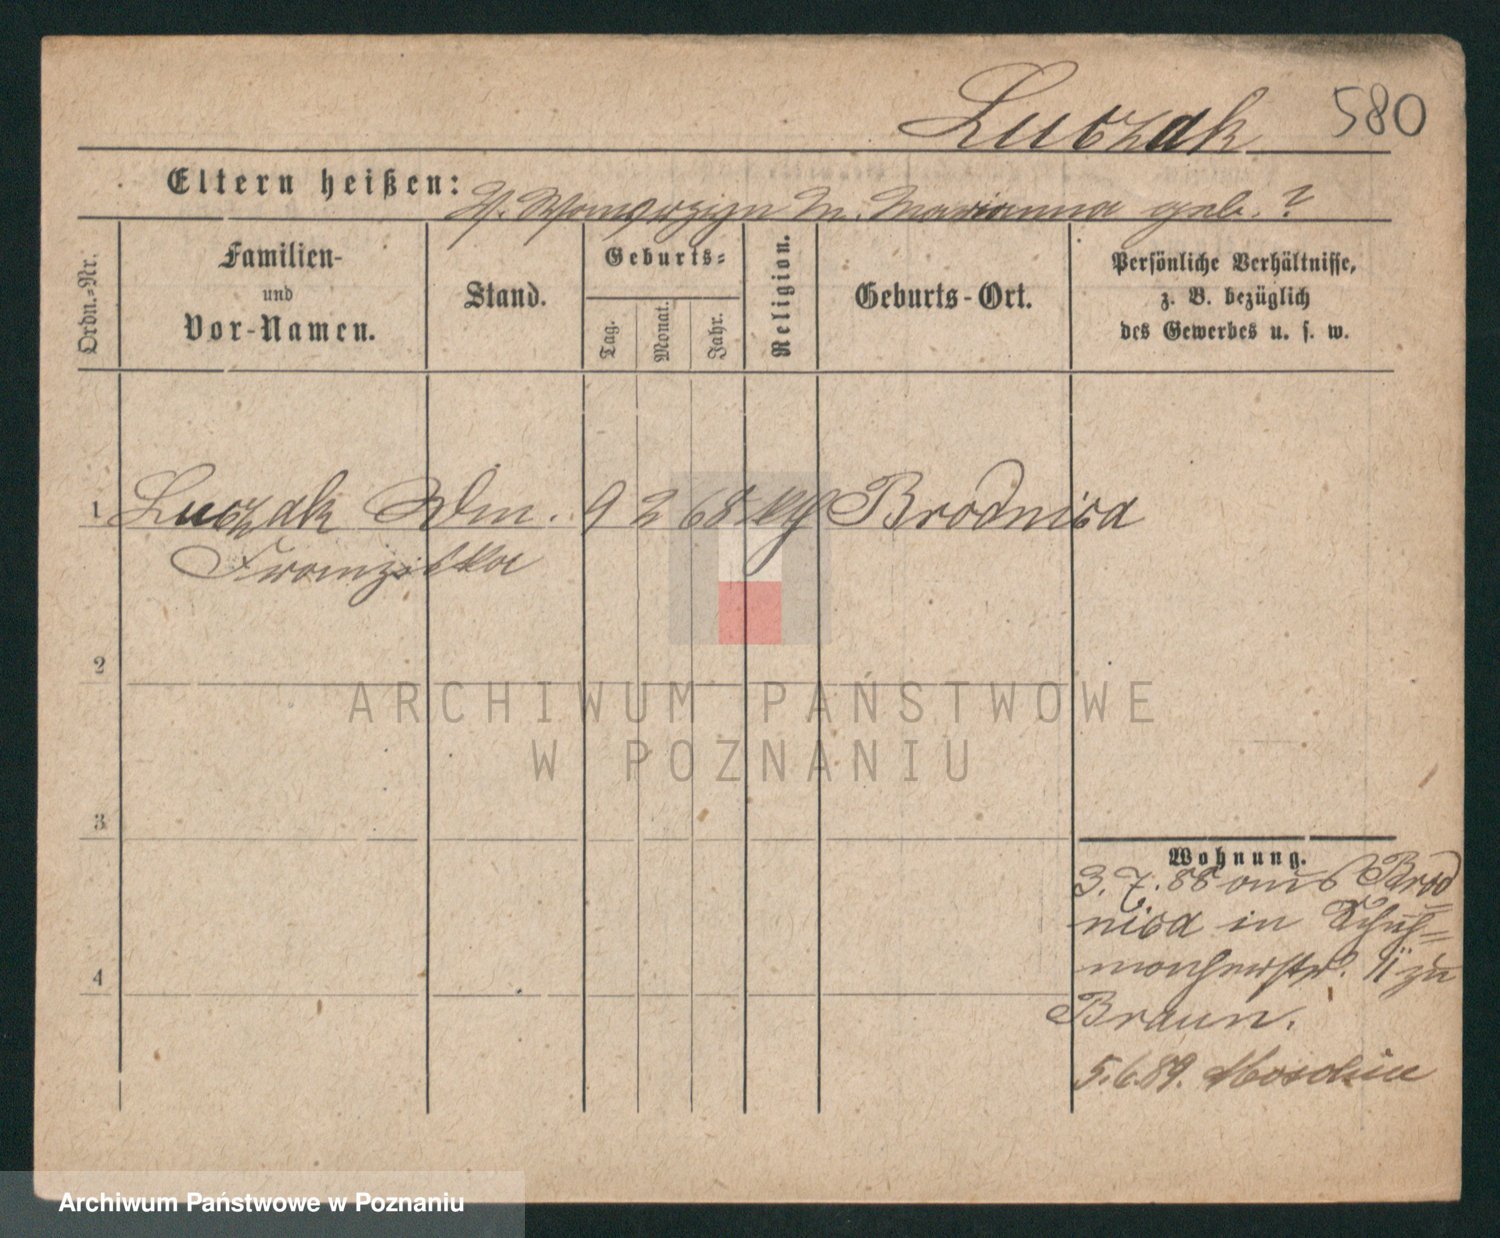 Luczak 580
Eltern heißen: V. Wawrzyn M. Marianna geb. ?
Ordn.-Nr.
Familien-
und
Vor-Namen.
Stand.
Geburts-
Tag.
Monat.
Jahr.
Religion.
Geburts-Ort.
Persönliche Verhältnisse,
z. B. bezüglich
des Gewerbes u. s. w.
1 Luczak 9 2 68 Brodnica
Franziska
2
3
4
ARCHIWUM PAŃSTWOWE
W POZNANIU
Wohnung.
3. 7. 88 aus Brod
nica in Schuh=
macherstr. 11 zu
Braun.
5.6.89.
Archiwum Państwowe w Poznaniu